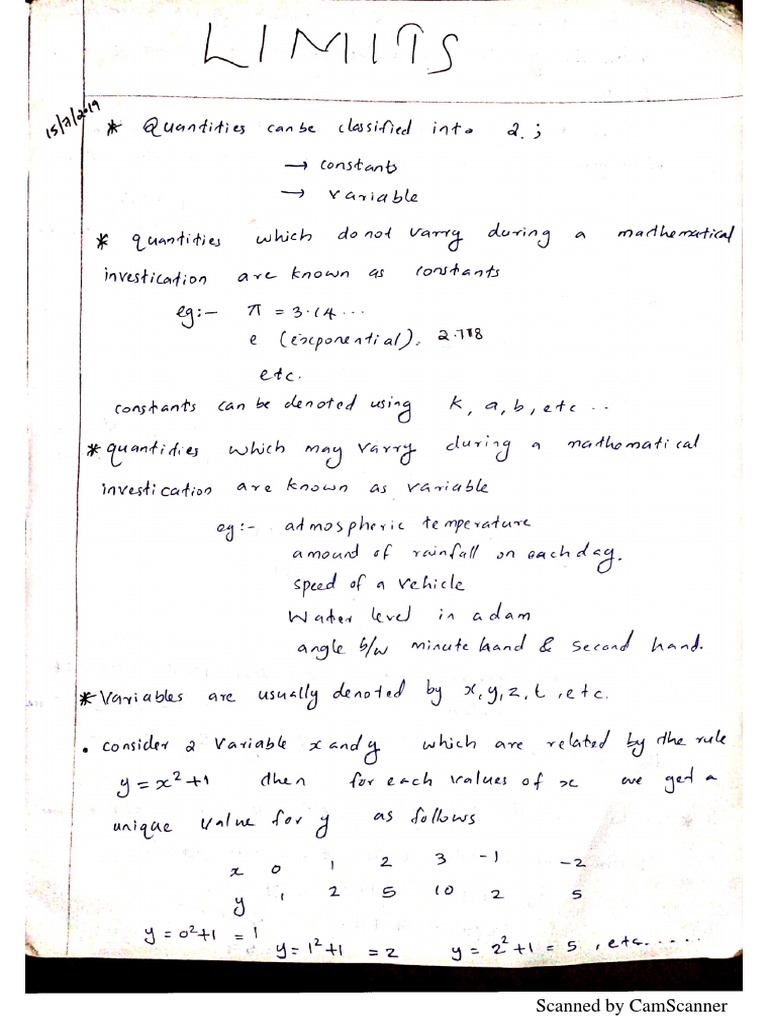 LIMITS
15/7/2019
* Quantities can be classified into 2.;
→ constants
→ variable
* quantities which do not varry during a mathematical
investication are known as constants
eg:- π = 3.14...
e (exponential), 2.718
etc.
constants can be denoted using k, a, b, etc ..
* quantities which may varry during a mathematical
investication are known as variable
eg:- atmospheric temperature
amount of rainfall on each day.
speed of a vehicle
Water level in a dam
angle b/w minute hand & second hand.
* Variables are usually denoted by x, y, z, t, etc.
• consider 2 variable x and y which are related by the rule
y = x²+1 then for each values of x we get a
unique value for y as follows
x 0 1 2 3 -1 -2
y 1 2 5 10 2 5
y = 0²+1 = 1 y = 1²+1 = 2 y = 2²+1 = 5, etc.....
Scanned by CamScanner